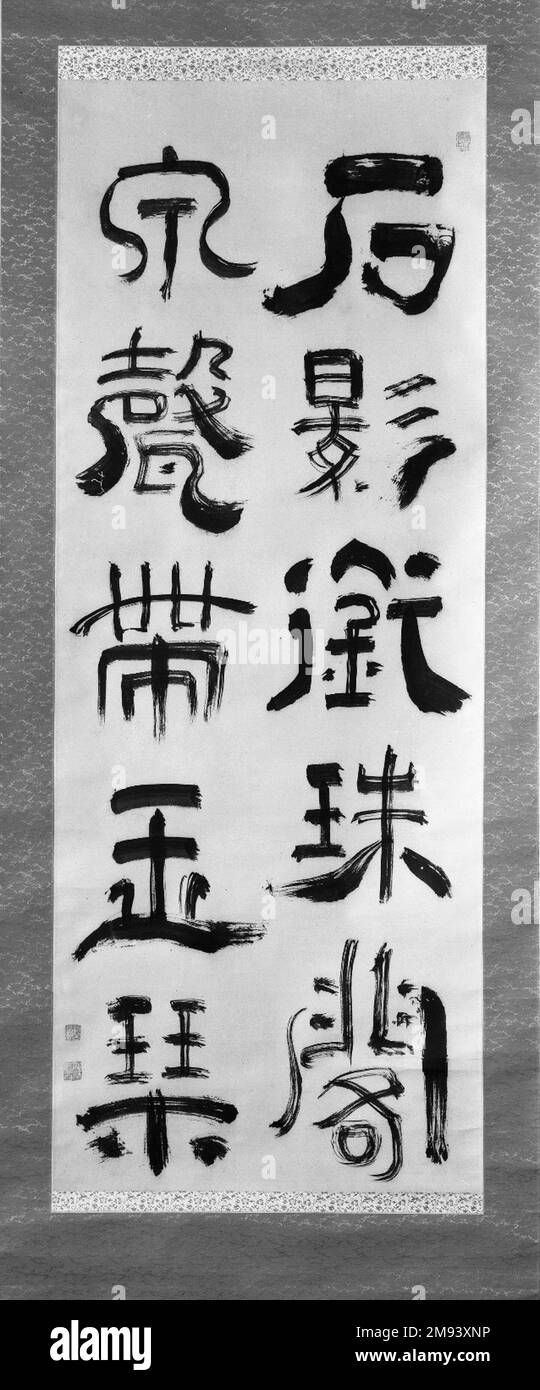 石影銜珠閣
泉聲帶玉琴
alamy
Image ID: 2M93XNP
www.alamy.com